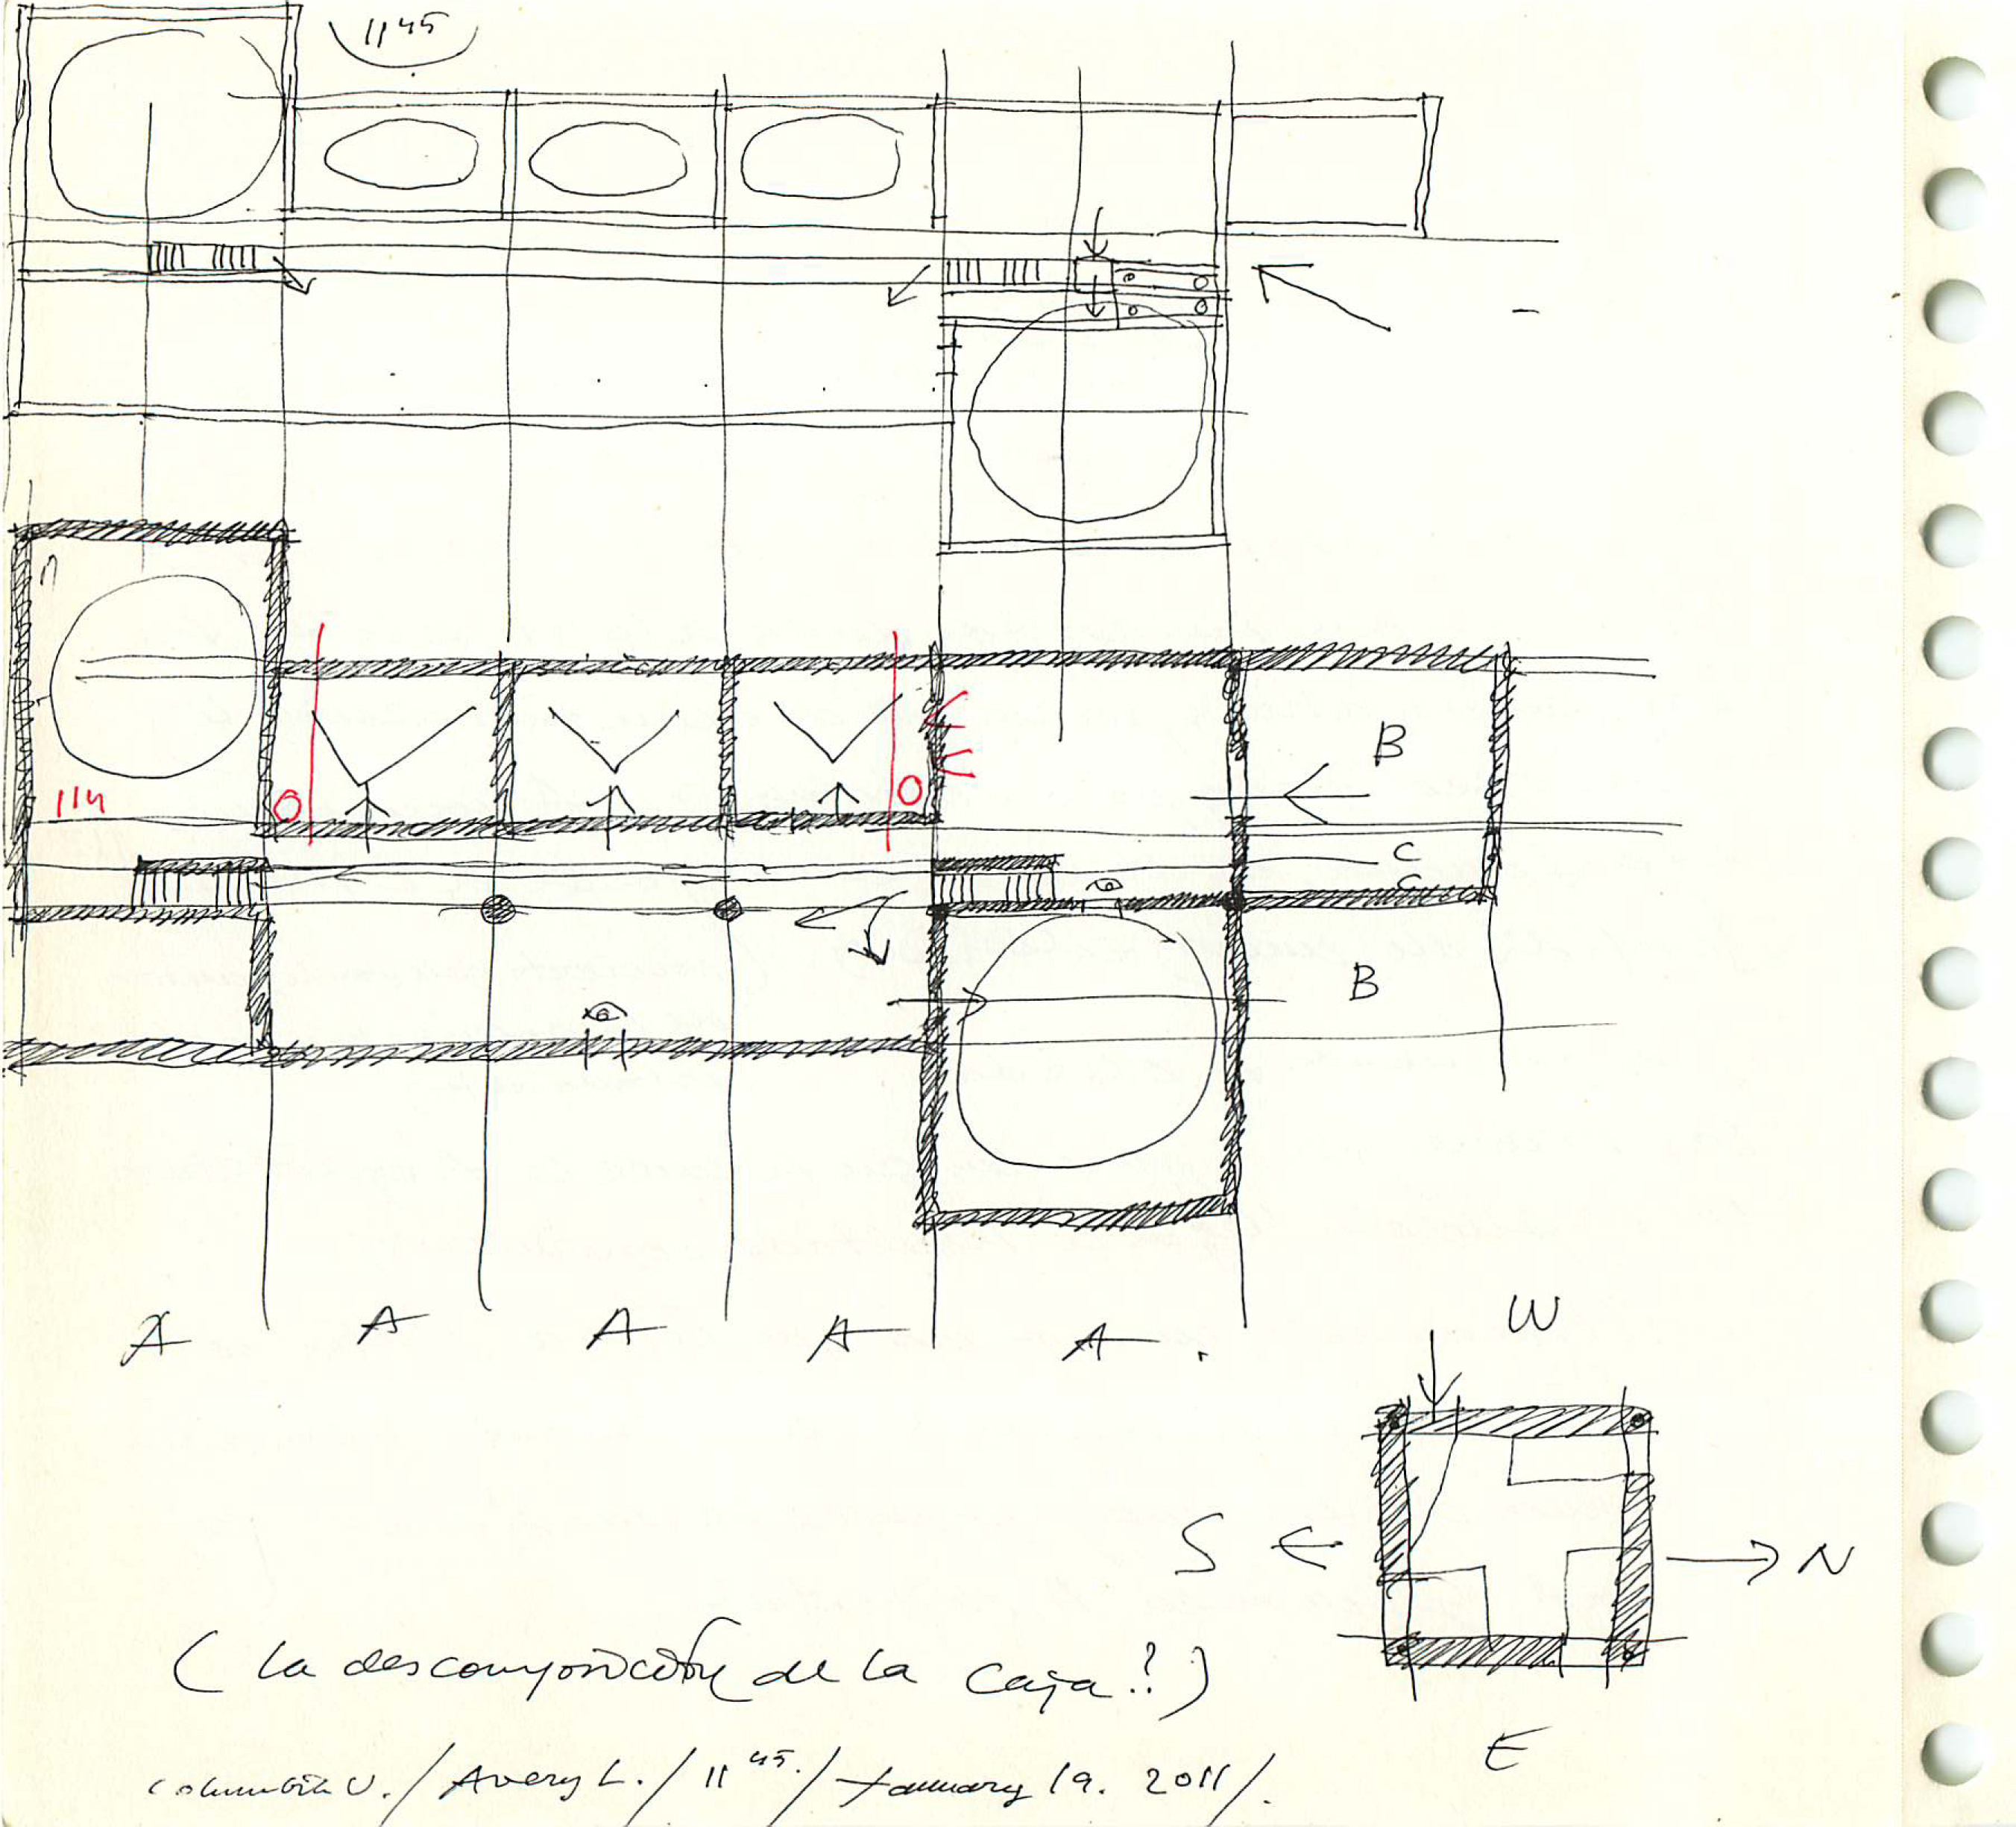 11 45
114
O
O
B
C
C
B
A A A A A.
W
S
N
E
( la descomposición de la caja!?)
Columbia U. / Avery L. / 11 45. / January 19. 2011 /.